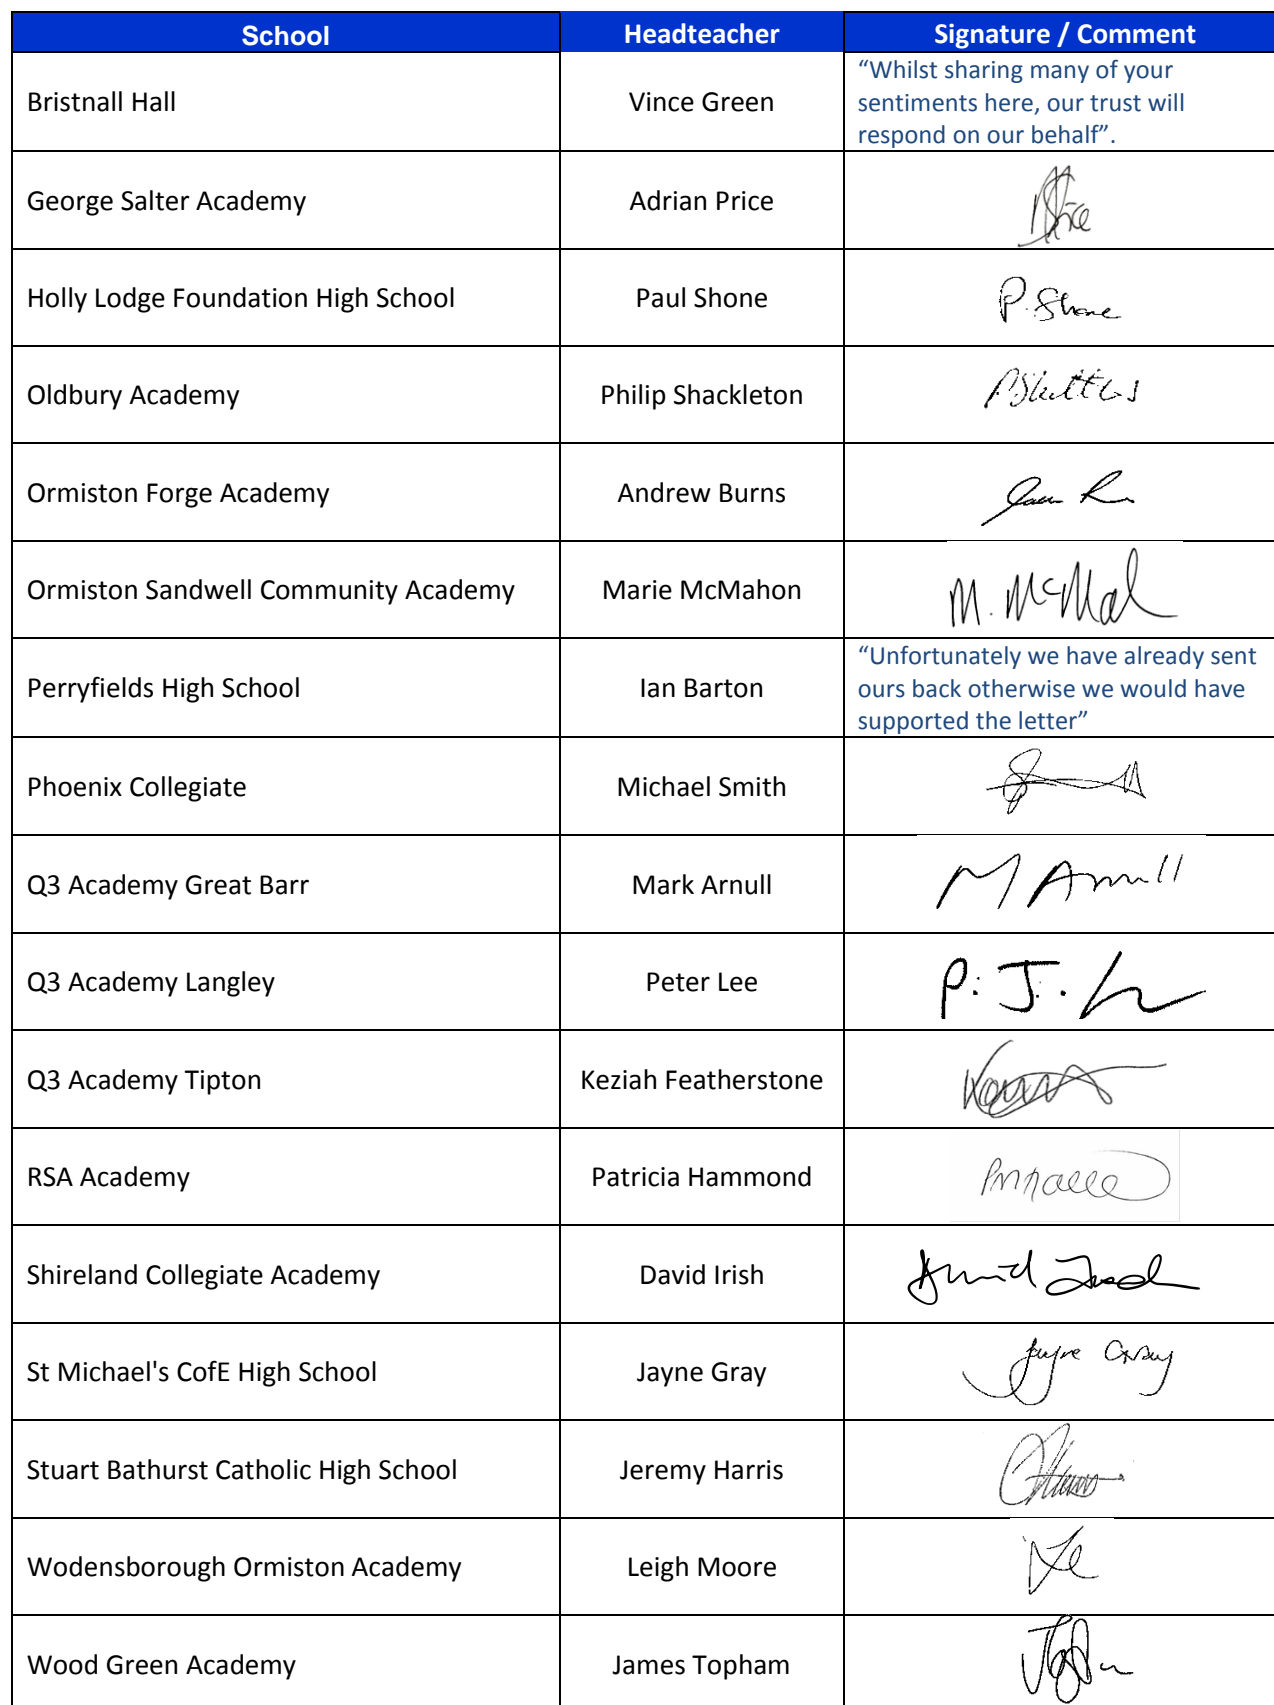 School Headteacher Signature / Comment
Bristnall Hall Vince Green “Whilst sharing many of your
sentiments here, our trust will
respond on our behalf”.
George Salter Academy Adrian Price
Holly Lodge Foundation High School Paul Shone P. Shone
Oldbury Academy Philip Shackleton
Ormiston Forge Academy Andrew Burns
Ormiston Sandwell Community Academy Marie McMahon
Perryfields High School Ian Barton “Unfortunately we have already sent
ours back otherwise we would have
supported the letter”
Phoenix Collegiate Michael Smith
Q3 Academy Great Barr Mark Arnull M Arnull
Q3 Academy Langley Peter Lee P. J.
Q3 Academy Tipton Keziah Featherstone
RSA Academy Patricia Hammond
Shireland Collegiate Academy David Irish David
St Michael's CofE High School Jayne Gray Jayne Gray
Stuart Bathurst Catholic High School Jeremy Harris
Wodensborough Ormiston Academy Leigh Moore
Wood Green Academy James Topham